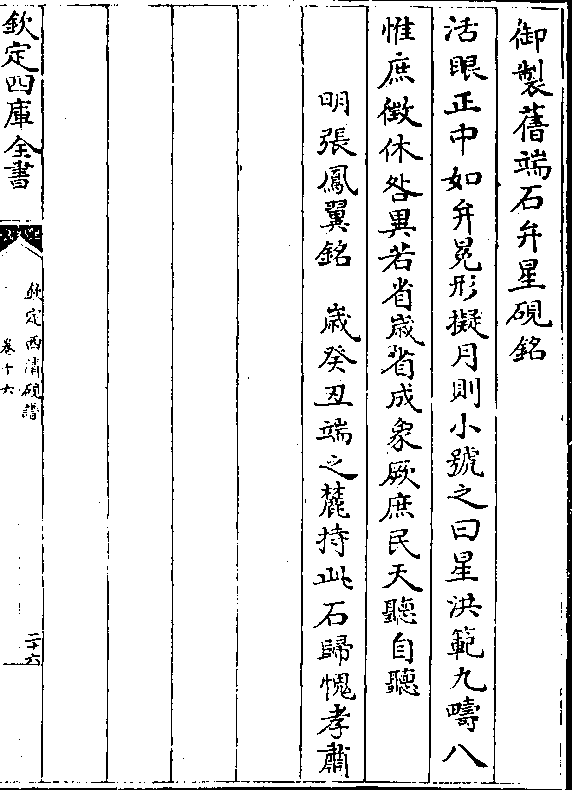 御製舊端石弁星硯銘
活眼正中如弁冕形擬月則小號之曰星洪範九疇八
惟庶徵休咎異若省歲省成象厥庶民天聽自聽
明張鳳翼銘　歲癸丑端之麓持此石歸愧孝肅
欽定四庫全書
欽定西清硯譜
卷十六
二十六